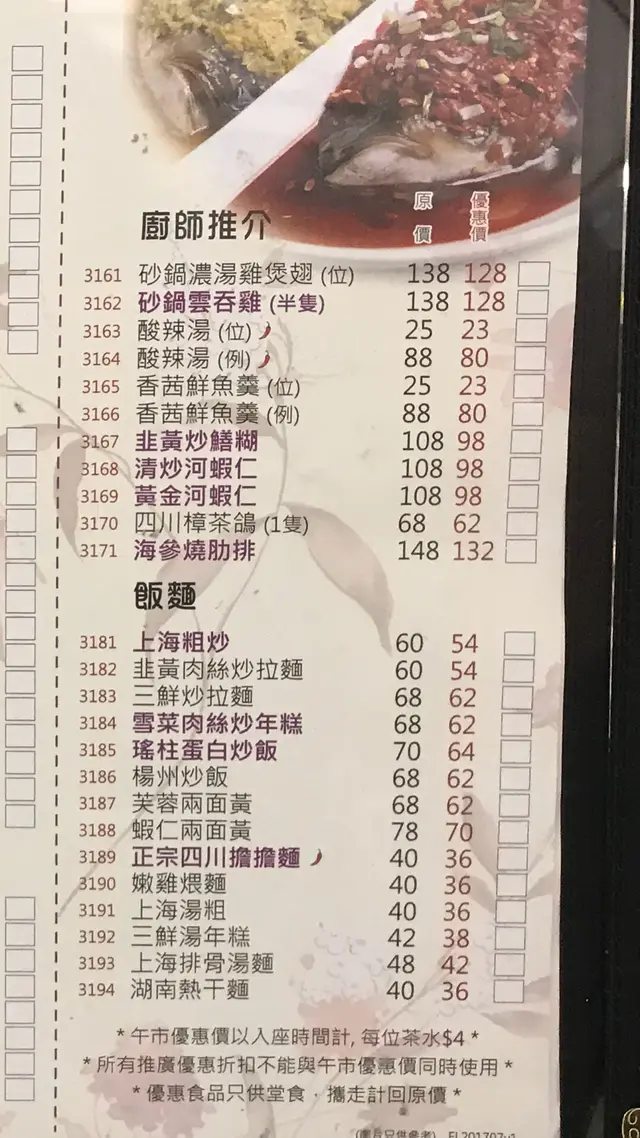 廚師推介 原價 優惠價
3161 砂鍋濃湯雞煲翅 (位) 138 128
3162 砂鍋雲吞雞 (半隻) 138 128
3163 酸辣湯 (位) 25 23
3164 酸辣湯 (例) 88 80
3165 香茜鮮魚羹 (位) 25 23
3166 香茜鮮魚羹 (例) 88 80
3167 韭黃炒鱔糊 108 98
3168 清炒河蝦仁 108 98
3169 黃金河蝦仁 108 98
3170 四川樟茶鴿 (1隻) 68 62
3171 海參燒肋排 148 132
飯麵
3181 上海粗炒 60 54
3182 韭黃肉絲炒拉麵 60 54
3183 三鮮炒拉麵 68 62
3184 雪菜肉絲炒年糕 68 62
3185 瑤柱蛋白炒飯 70 64
3186 楊州炒飯 68 62
3187 芙蓉兩面黃 68 62
3188 蝦仁兩面黃 78 70
3189 正宗四川擔擔麵 40 36
3190 嫩雞煨麵 40 36
3191 上海湯粗 40 36
3192 三鮮湯年糕 42 38
3193 上海排骨湯麵 48 42
3194 湖南熱干麵 40 36
* 午市優惠價以入座時間計, 每位茶水$4 *
* 所有推廣優惠折扣不能與午市優惠價同時使用 *
* 優惠食品只供堂食．攜走計回原價 *